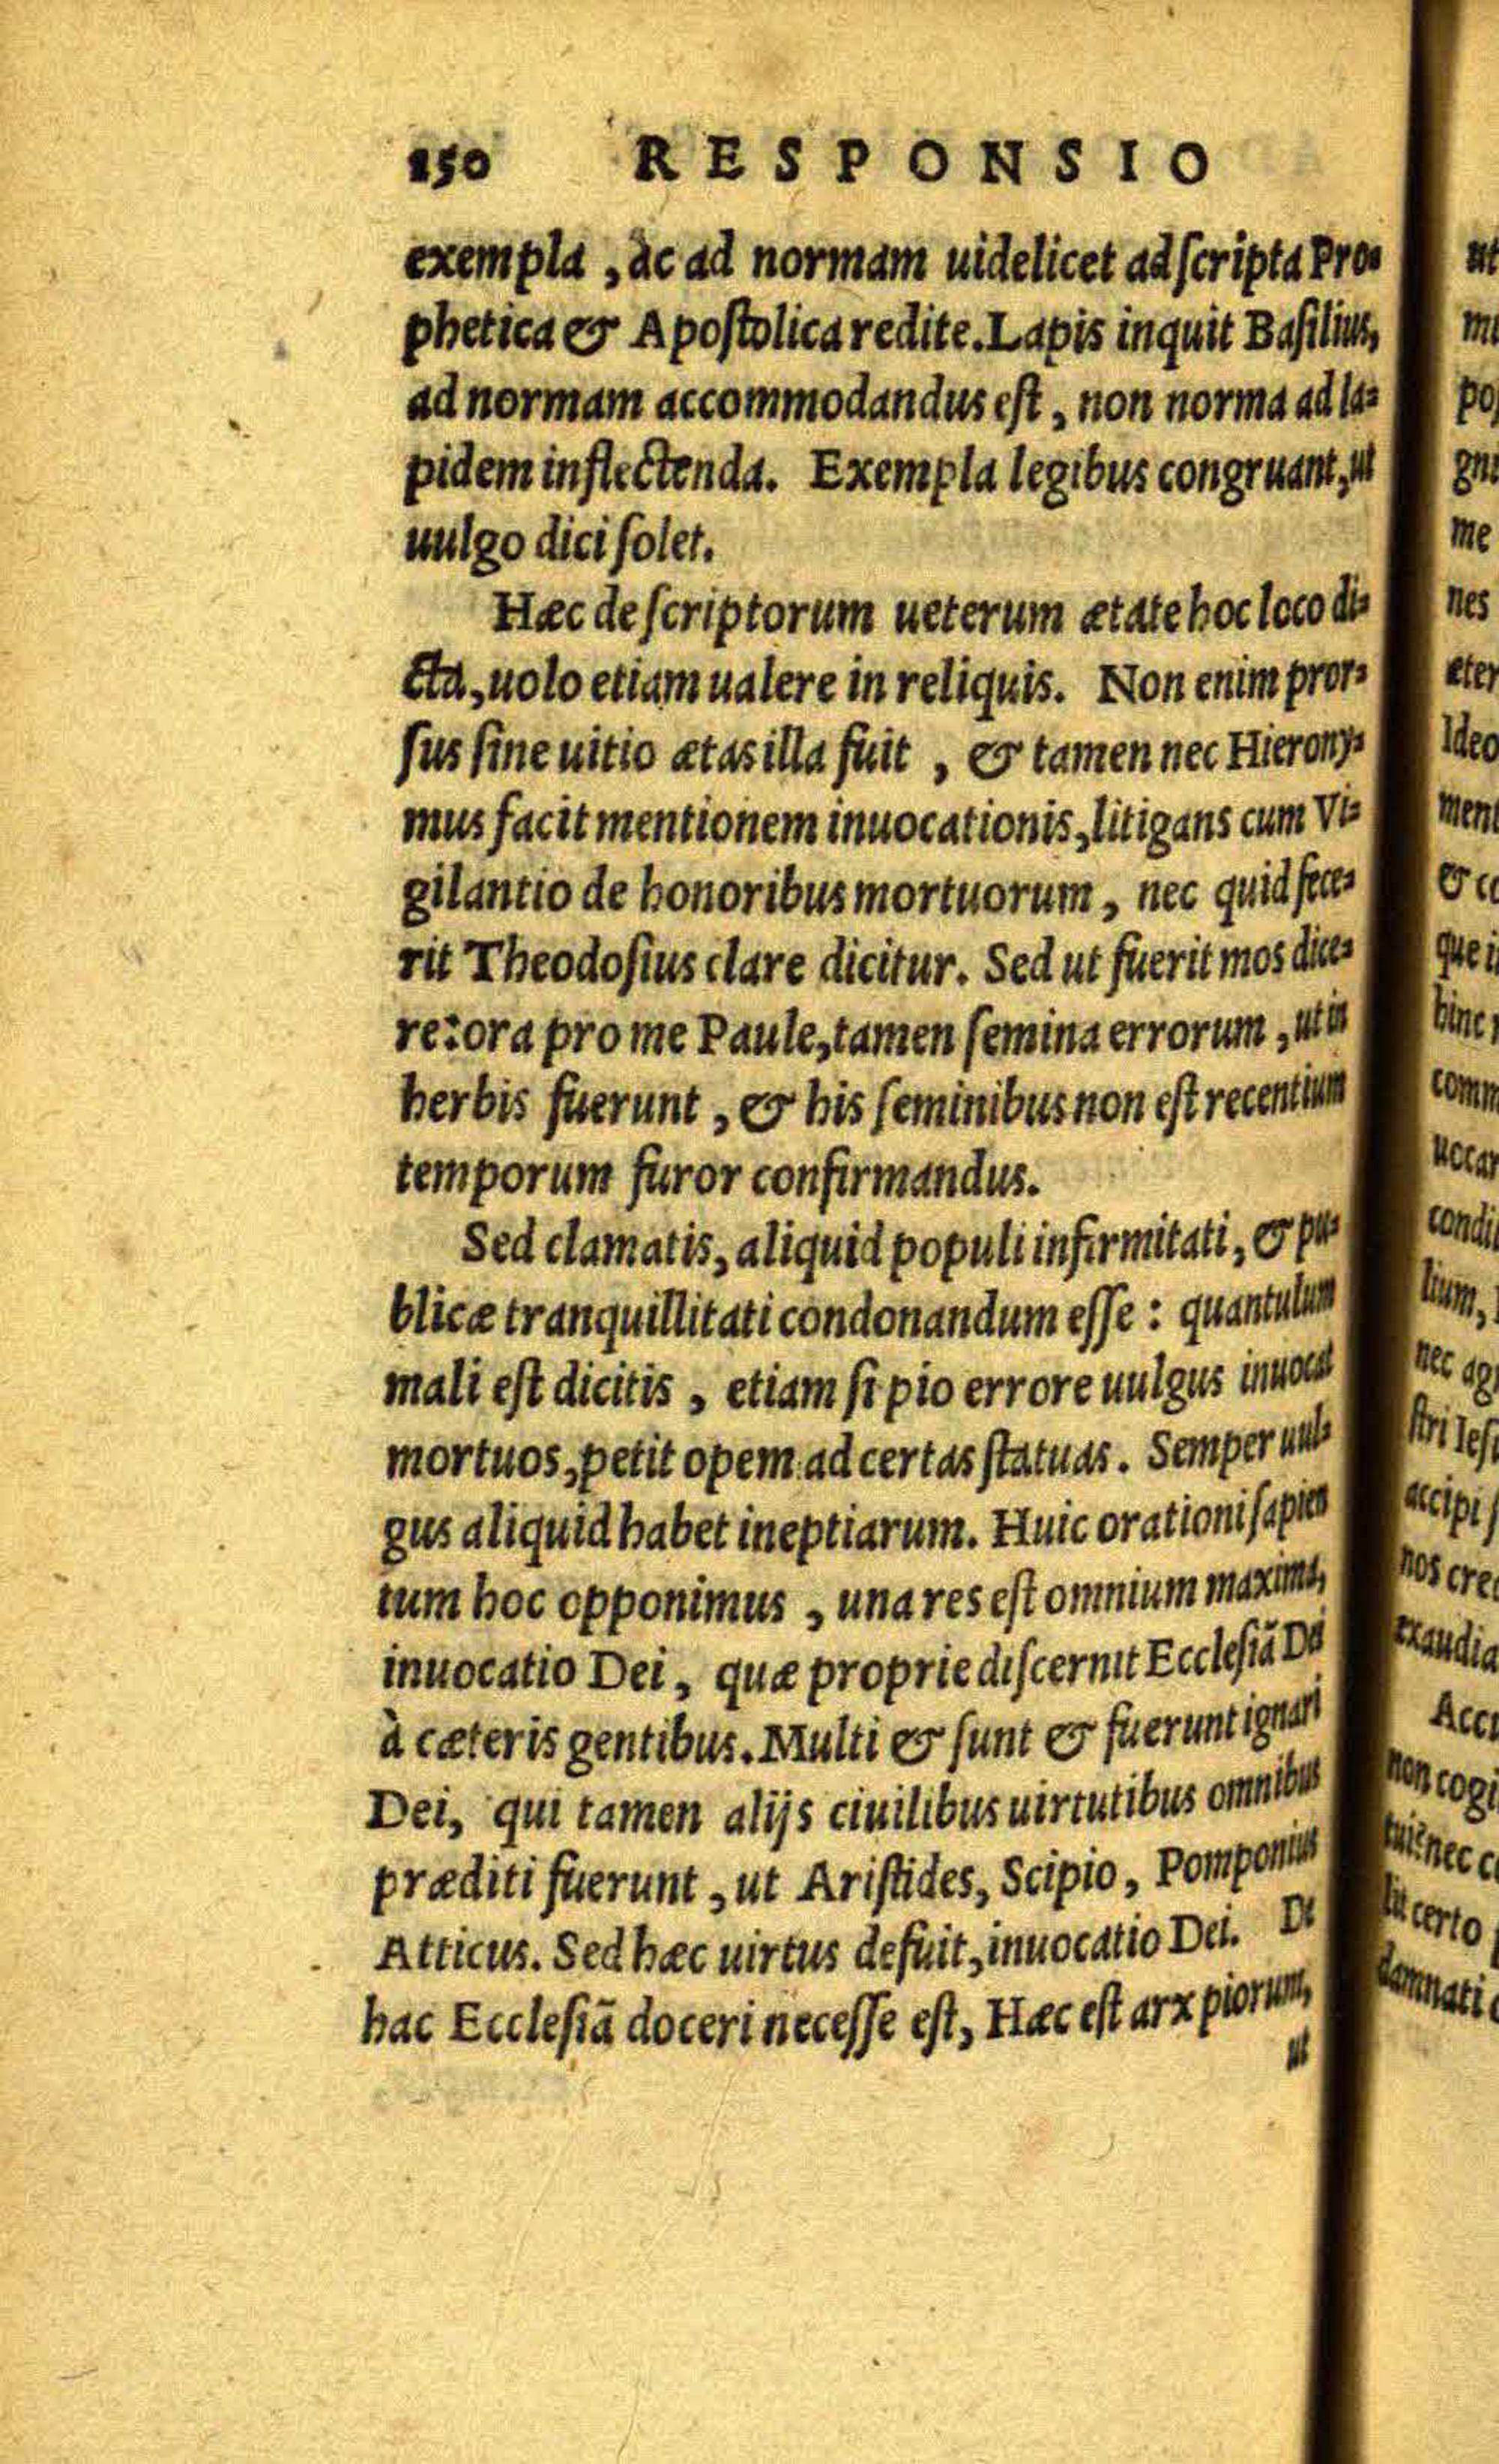 150 RESPONSIO
exempla, ac ad normam uidelicet ad ſcripta Pro-
phetica & Apoſtolica redite. Lapis inquit Baſilius,
ad normam accommodandus eſt, non norma ad la-
pidem inflectenda. Exempla legibus congruant, ut
uulgo dici ſolet.
Hæc de ſcriptorum ueterum ætate hoc loco di-
cta, uolo etiam ualere in reliquis. Non enim pror-
ſus ſine uitio ætas illa fuit, & tamen nec Hierony-
mus facit mentionem inuocationis, litigans cum Vi-
gilantio de honoribus mortuorum, nec quid fece-
rit Theodoſius clare dicitur. Sed ut fuerit mos dice-
re: ora pro me Paule, tamen ſemina errorum, ut in
herbis fuerunt, & his ſeminibus non eſt recentium
temporum furor confirmandus.
Sed clamatis, aliquid populi infirmitati, & pu-
blicæ tranquillitati condonandum eſſe: quantulum
mali eſt dicitis, etiam ſi pio errore uulgus inuocat
mortuos, petit opem ad certas ſtatuas. Semper uul-
gus aliquid habet ineptiarum. Huic orationi ſapien
tum hoc opponimus, una res eſt omnium maxima,
inuocatio Dei, quæ proprie diſcernit Eccleſiã Dei
à cæteris gentibus. Multi & ſunt & fuerunt ignari
Dei, qui tamen alijs ciuilibus uirtutibus omnibus
præditi fuerunt, ut Ariſtides, Scipio, Pomponius
Atticus. Sed hæc uirtus defuit, inuocatio Dei. De
hac Eccleſiã doceri neceſſe eſt, Hæc eſt arx piorum,
ut
ut
po
me
nes
Ideo
ment
& c
que i
hinc
comm
uocar
condi
lium,
nec
ſtri Ieſ
accipi
nos cre
exaudia
Acc
non cogi
nec c
certo
damnati